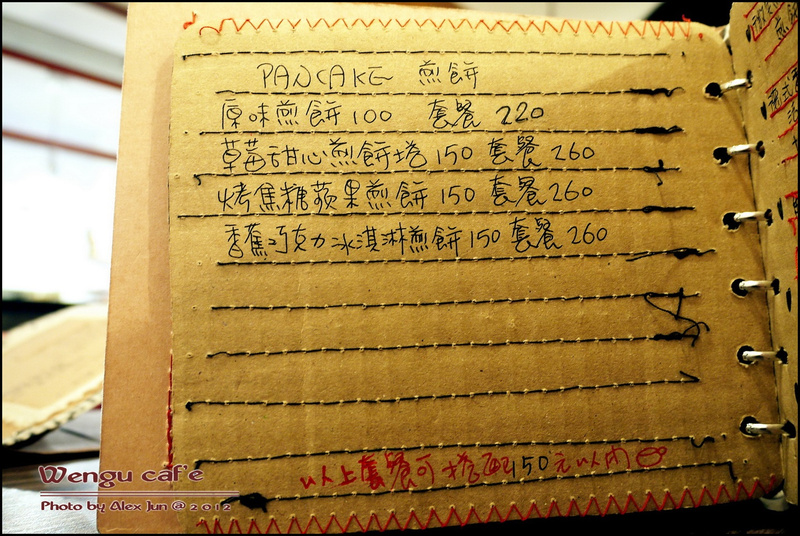 PANCAKE 煎餅
原味煎餅 100 套餐 220
草莓甜心煎餅塔 150 套餐 260
烤焦糖蘋果煎餅 150 套餐 260
香蕉巧克力冰淇淋煎餅 150 套餐 260
以上套餐可搭配150元以內
Wengu caf'e
Photo by Alex Jun @ 2012